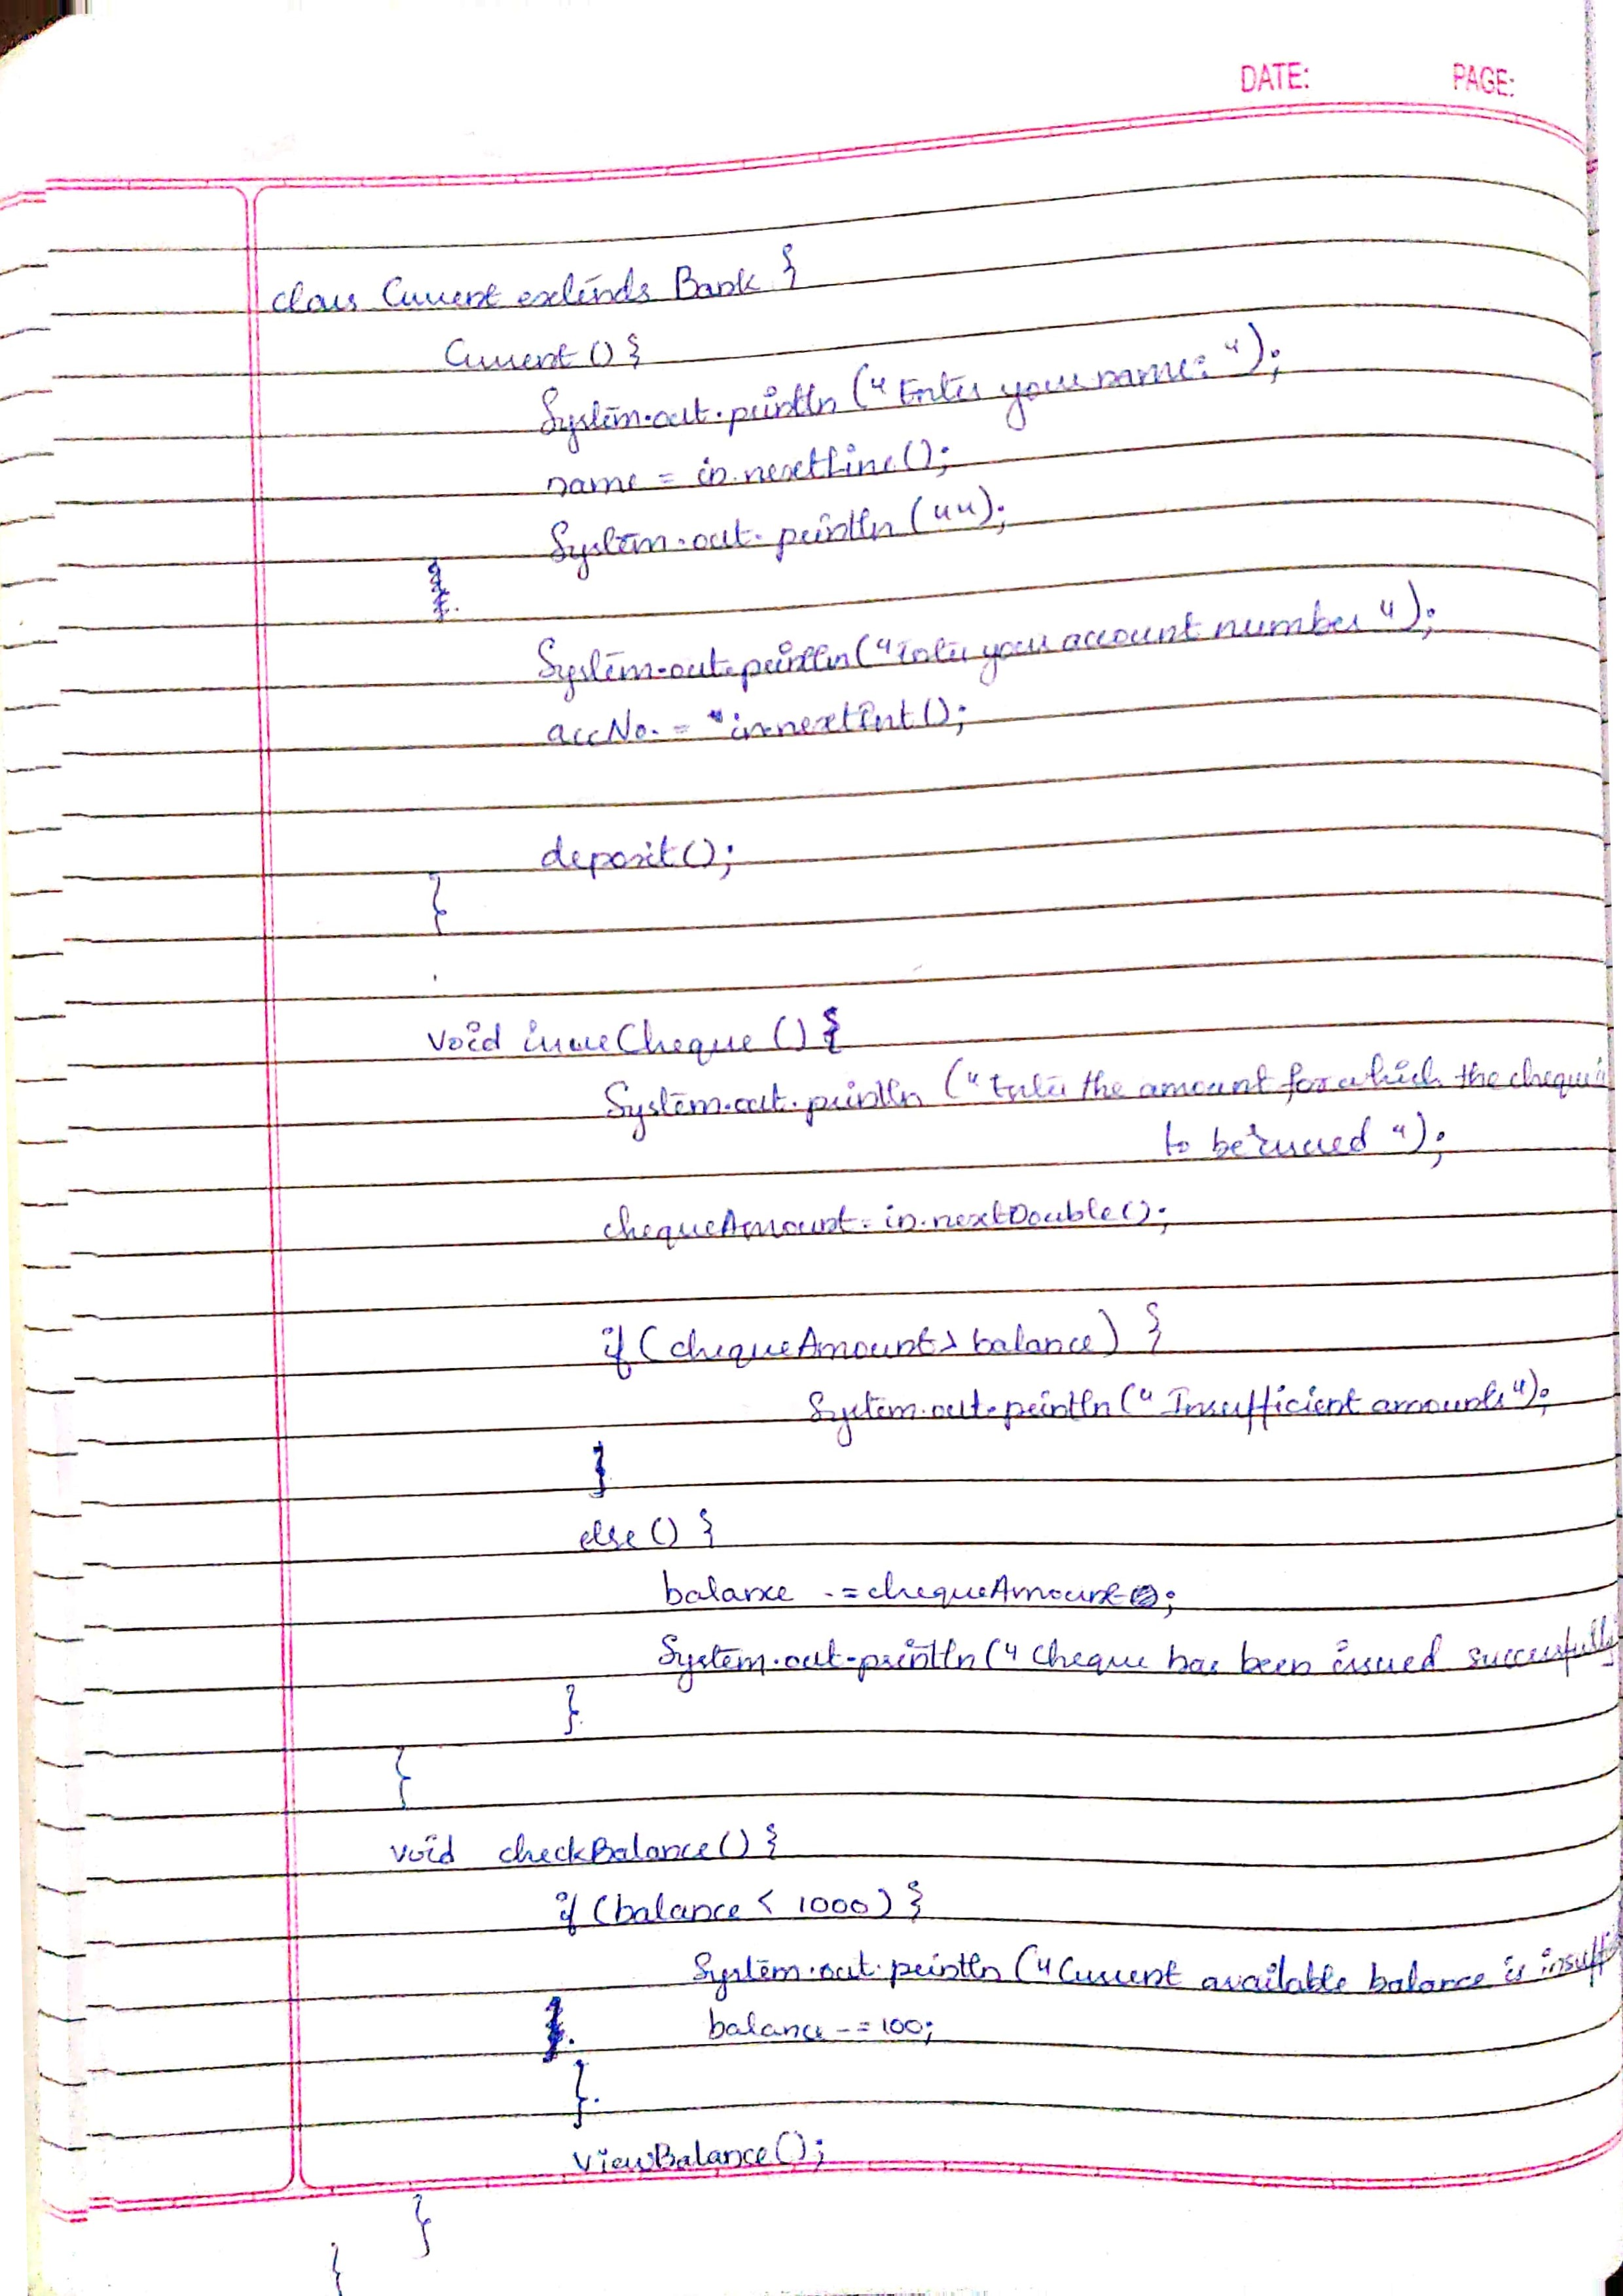 DATE: PAGE:
class Current extends Bank {
Current () {
System.out.println ("Enter your name: ");
name = in.nextLine();
System.out.println ("");
System.out.println ("Enter your account number ");
accNo. = in.nextInt();
deposit();
}
void issueCheque () {
System.out.println ("Enter the amount for which the cheque is
to be issued ");
chequeAmount = in.nextDouble();
if (chequeAmount > balance) {
System.out.println (" Insufficient amounts");
}
else () {
balance -= chequeAmount;
System.out.println (" Cheque has been issued successfully
}
}
void checkBalance() {
if (balance < 1000) {
System.out.println ("Current available balance is insuffi
balance -= 100;
}
viewBalance();
}
}